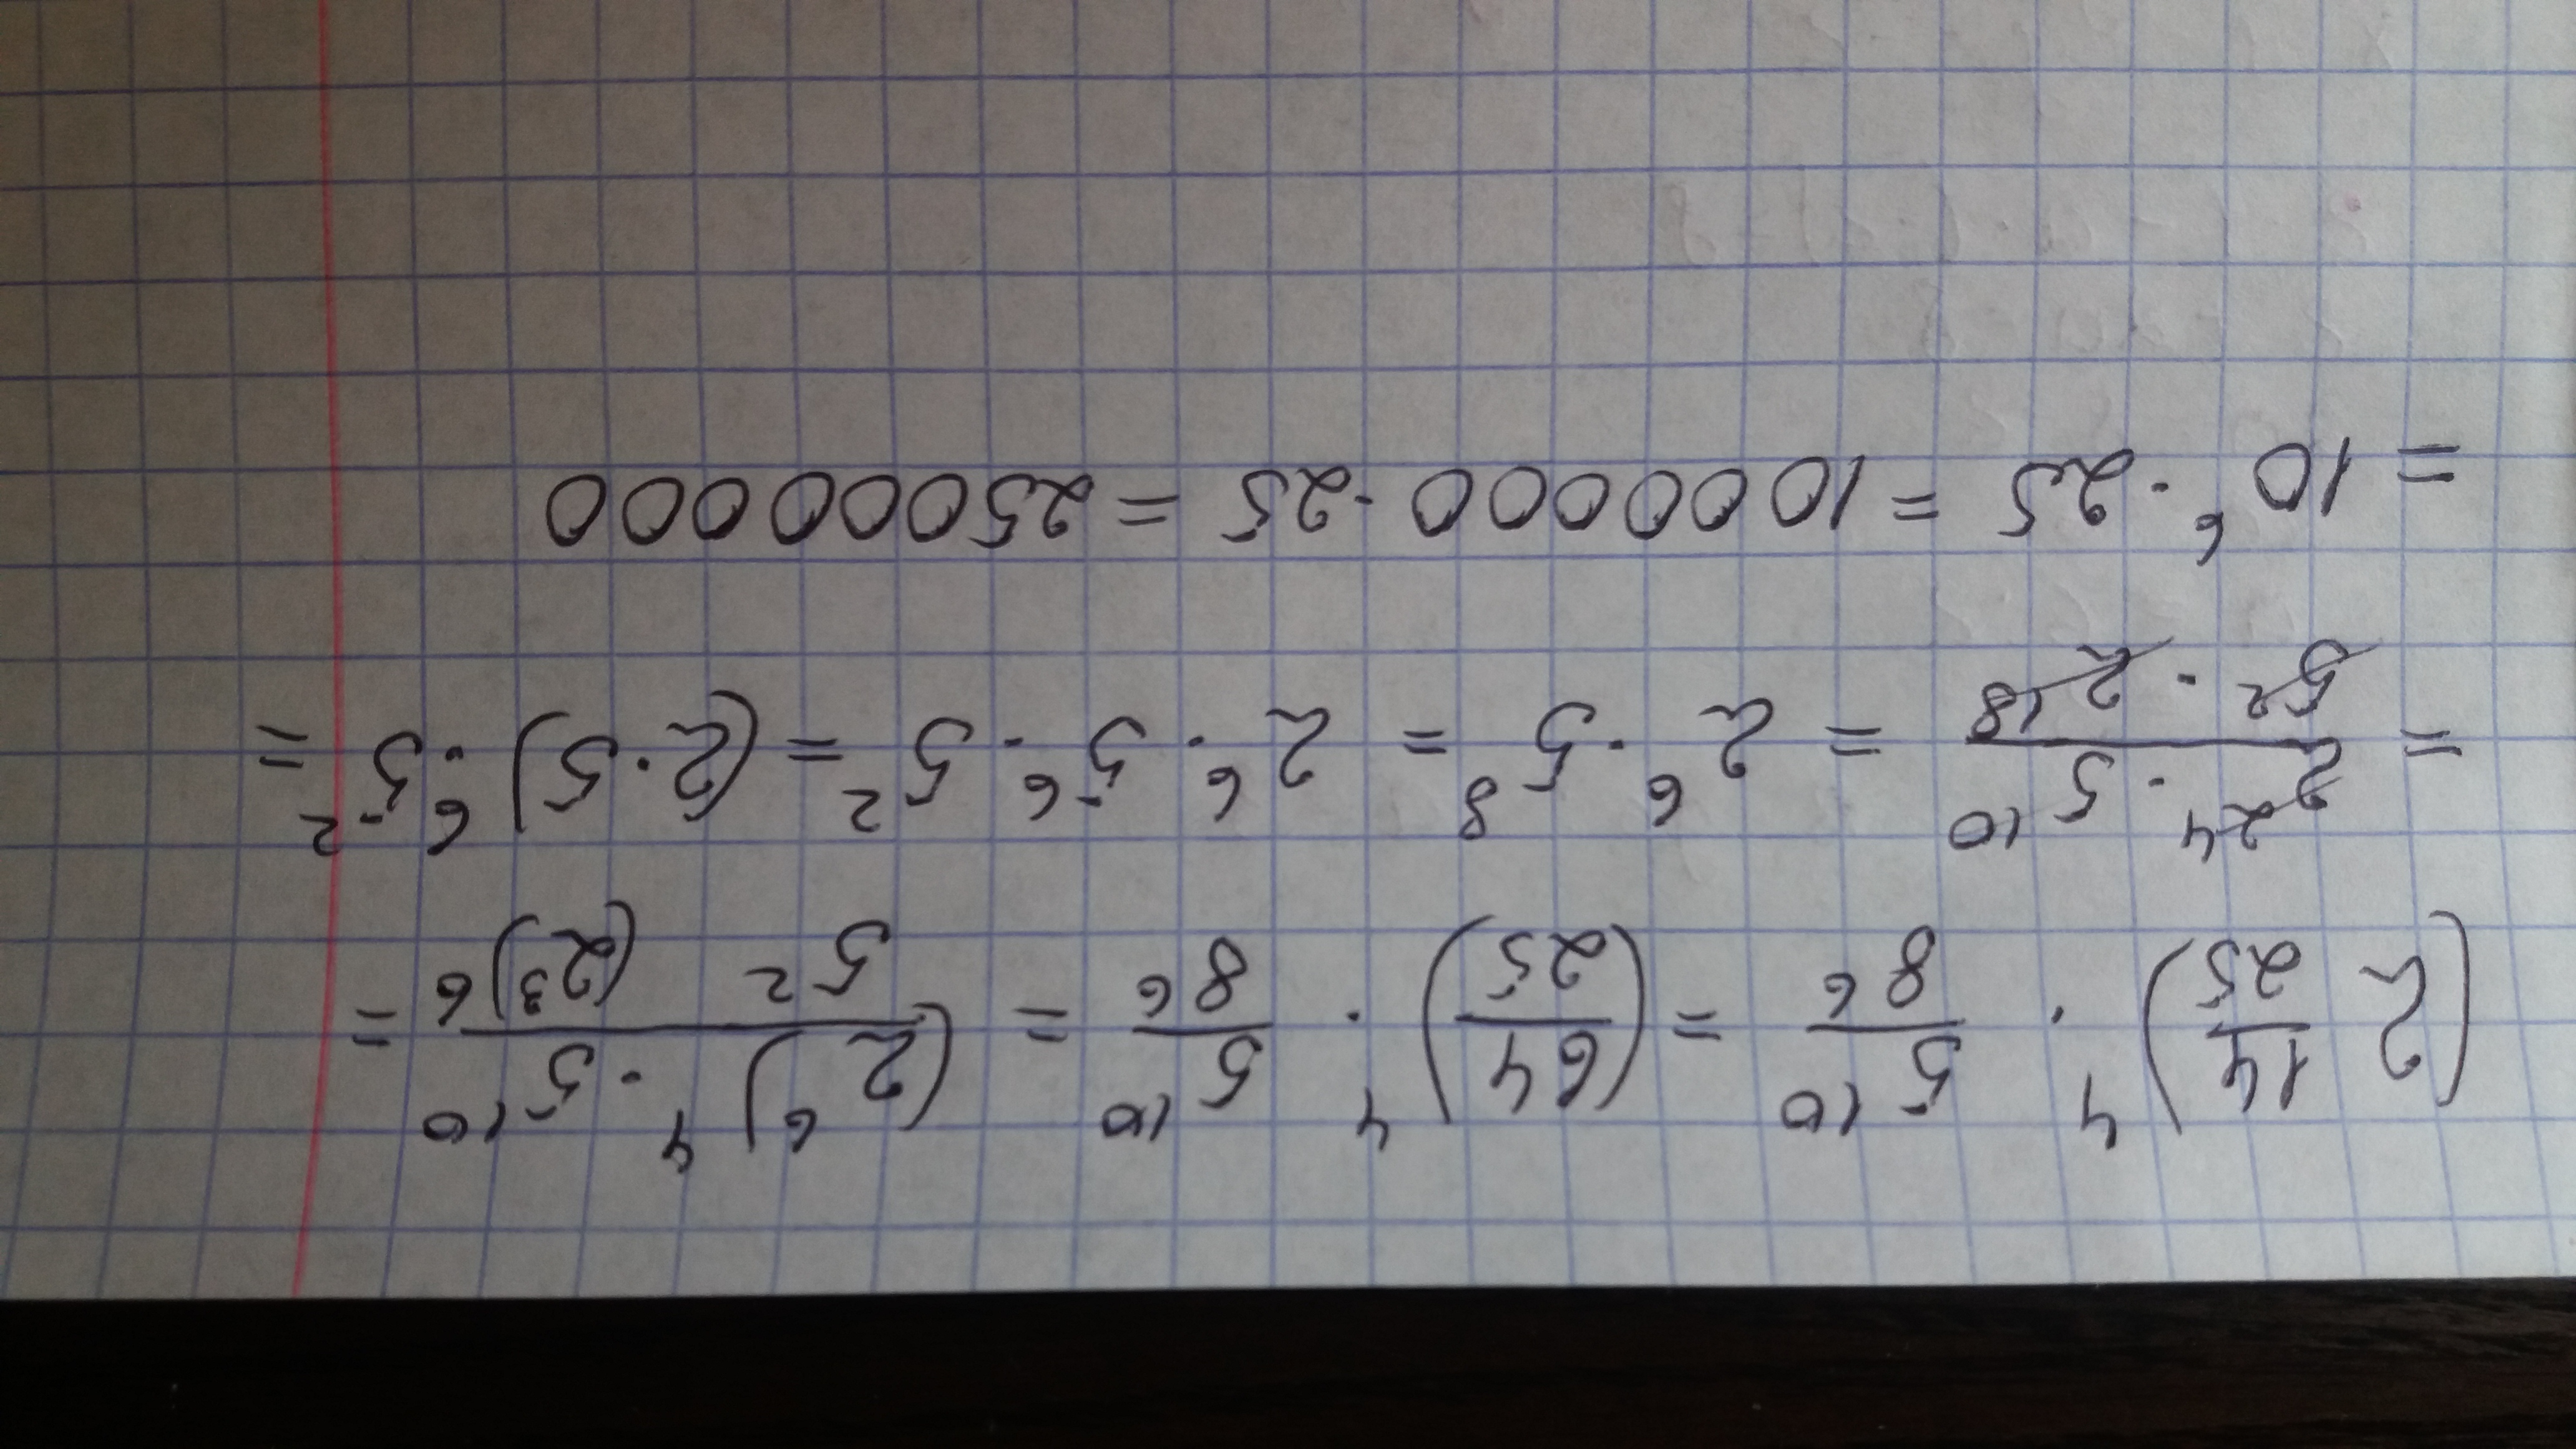 (2 14/25)^4 · 5^10/8^6 = (64/25)^4 · 5^10/8^6 = (2^6)^4 · 5^10 / 5^2 (2^3)^6 =
= 2^24 · 5^10 / 5^2 · 2^18 = 2^6 · 5^8 = 2^6 · 5^6 · 5^2 = (2·5)^6 · 5^2 =
= 10^6 · 25 = 1000000 · 25 = 25000000